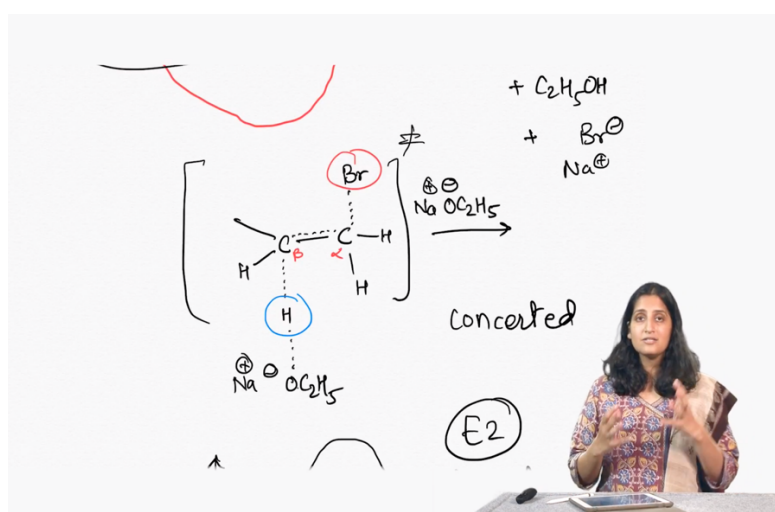 + C₂H₅OH
+ Br⊖
Na⊕
≠
Br
⊕ ⊖
Na OC₂H₅
C β C α H
H
H
H
concerted
⊕ ⊖
Na OC₂H₅
E2